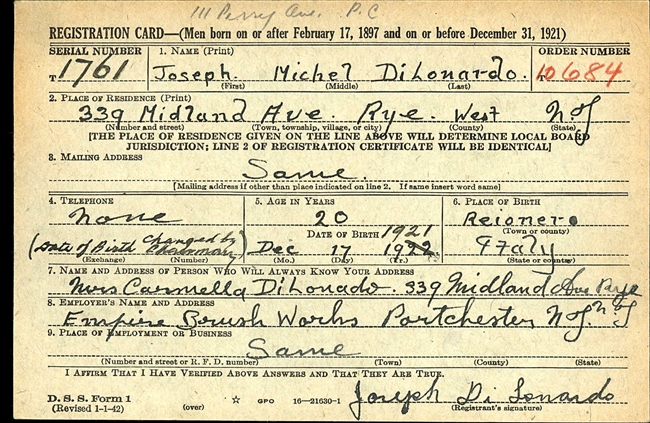 111 Perry Ave. P.C
REGISTRATION CARD—(Men born on or after February 17, 1897 and on or before December 31, 1921)
SERIAL NUMBER 1. NAME (Print) ORDER NUMBER
T 1761 Joseph. Michel DiLonardo. 10684
(First) (Middle) (Last)
2. PLACE OF RESIDENCE (Print)
339 Midland Ave. Rye. West N.Y
(Number and street) (Town, township, village, or city) (County) (State)
[THE PLACE OF RESIDENCE GIVEN ON THE LINE ABOVE WILL DETERMINE LOCAL BOARD
JURISDICTION; LINE 2 OF REGISTRATION CERTIFICATE WILL BE IDENTICAL]
3. MAILING ADDRESS
Same.
[Mailing address if other than place indicated on line 2. If same insert word same]
4. TELEPHONE 5. AGE IN YEARS 6. PLACE OF BIRTH
None 20 Reionero
DATE OF BIRTH 1921 (Town or county)
(Date of Birth changed by Chairman) Dec 17 1922 Italy
(Exchange) (Number) (Mo.) (Day) (Yr.) (State or country)
7. NAME AND ADDRESS OF PERSON WHO WILL ALWAYS KNOW YOUR ADDRESS
Mrs Carmella DiLonado. 339 Midland Ave Rye
8. EMPLOYER'S NAME AND ADDRESS N.Y
Empire Brush Works Portchester N.Y.
9. PLACE OF EMPLOYMENT OR BUSINESS
Same
(Number and street or R. F. D. number) (Town) (County) (State)
I AFFIRM THAT I HAVE VERIFIED ABOVE ANSWERS AND THAT THEY ARE TRUE.
D. S. S. Form 1
(Revised 1-1-42) (over) ☆ GPO 16—21630-1 Joseph Di Lonardo
(Registrant's signature)